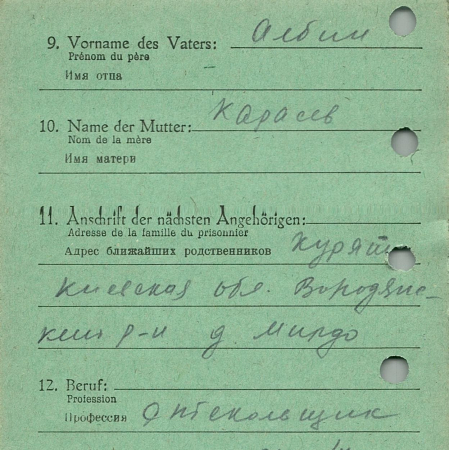 9. Vorname des Vaters: Албин
Prénom du père
Имя отца
10. Name der Mutter: Карасев
Nom de la mère
Имя матери
11. Anschrift der nächsten Angehörigen:
Adresse de la famille du prisonnier
Адрес ближайших родственников
Киевская обл. Бородянс-
ким р-н д. Мирдо
12. Beruf:
Profession
Профессия